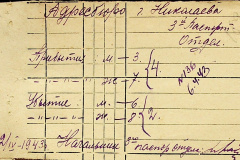 Адресбюро г. Николаева
3го Паспорт.
Отдел.
Прибытие м — 3.
" — " ж — 7.
4.
№136
6-4-43
Убытие м. — 6
— " — " ж — 8
2.
2/IV-1943 Начальник 3го паспорт стола